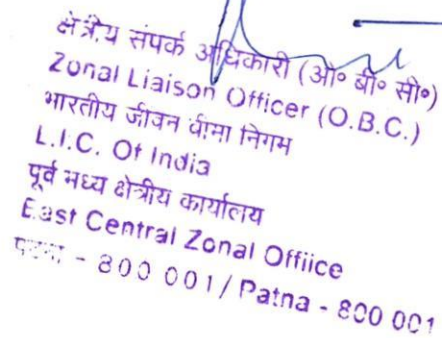 क्षेत्रीय संपर्क अधिकारी (ओ० बी० सी०)
Zonal Liaison Officer (O.B.C.)
भारतीय जीवन बीमा निगम
L.I.C. Of India
पूर्व मध्य क्षेत्रीय कार्यालय
East Central Zonal Offiice
पटना - 800 001/ Patna - 800 001